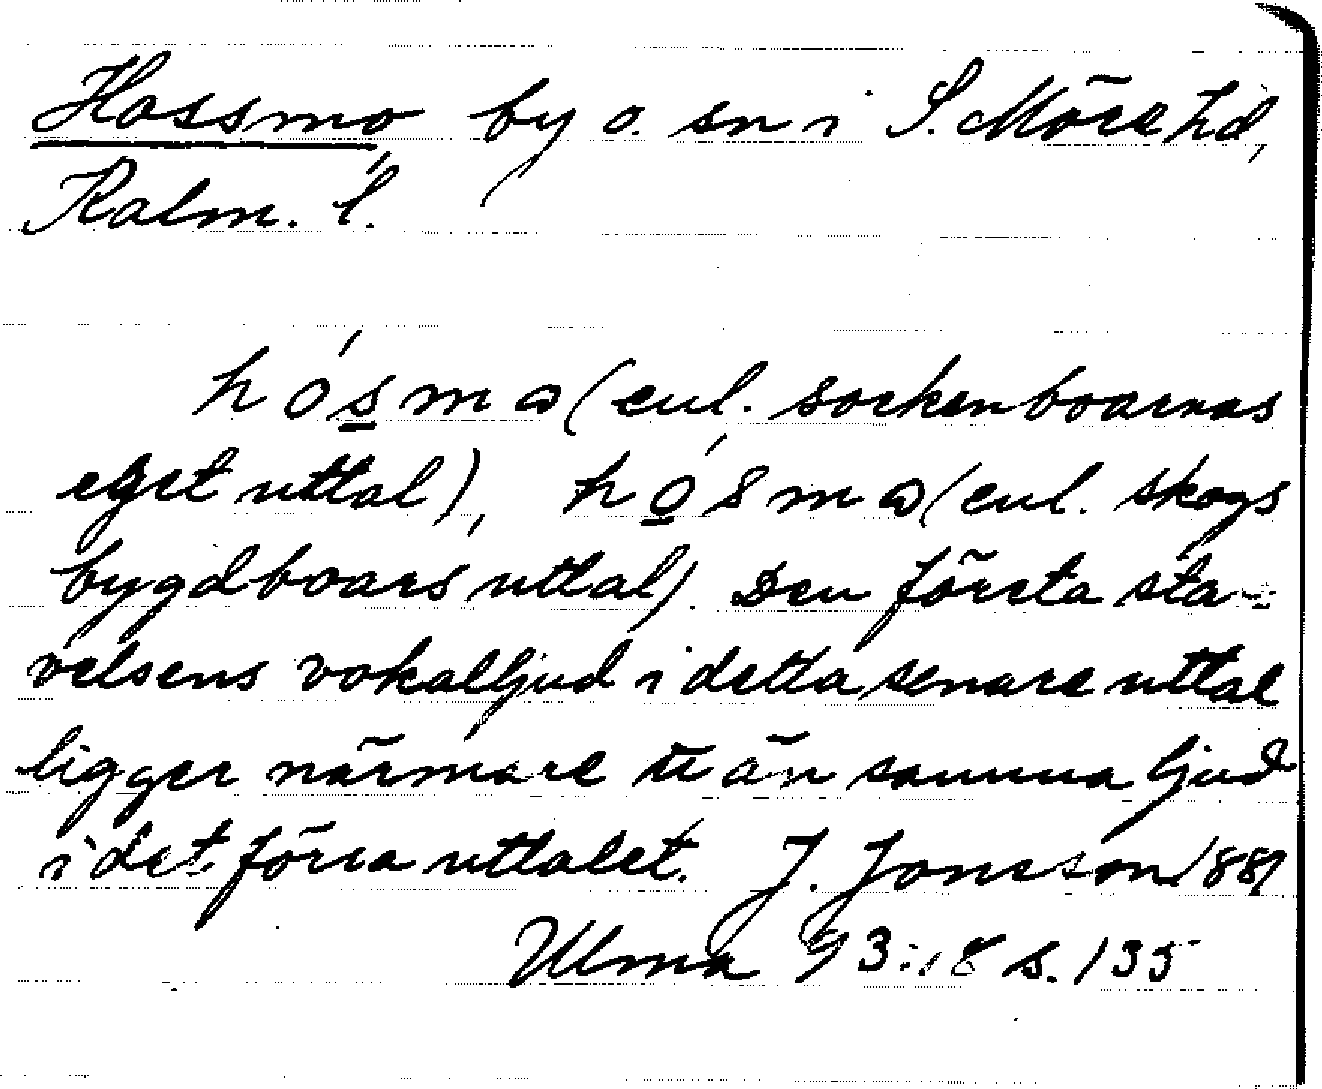 Hossmo by o. sn i S. Möre hd,
Kalm. l.
hósmɷ (enl. sockenboarnas
eget uttal), hósmɷ (enl. skogs
bygdboars uttal). Den första sta-
velsens vokalljud i detta senare uttal
ligger närmare u än samma ljud
i det förra uttalet. J. Jonsson 1881
Ulma 93:18 s. 135